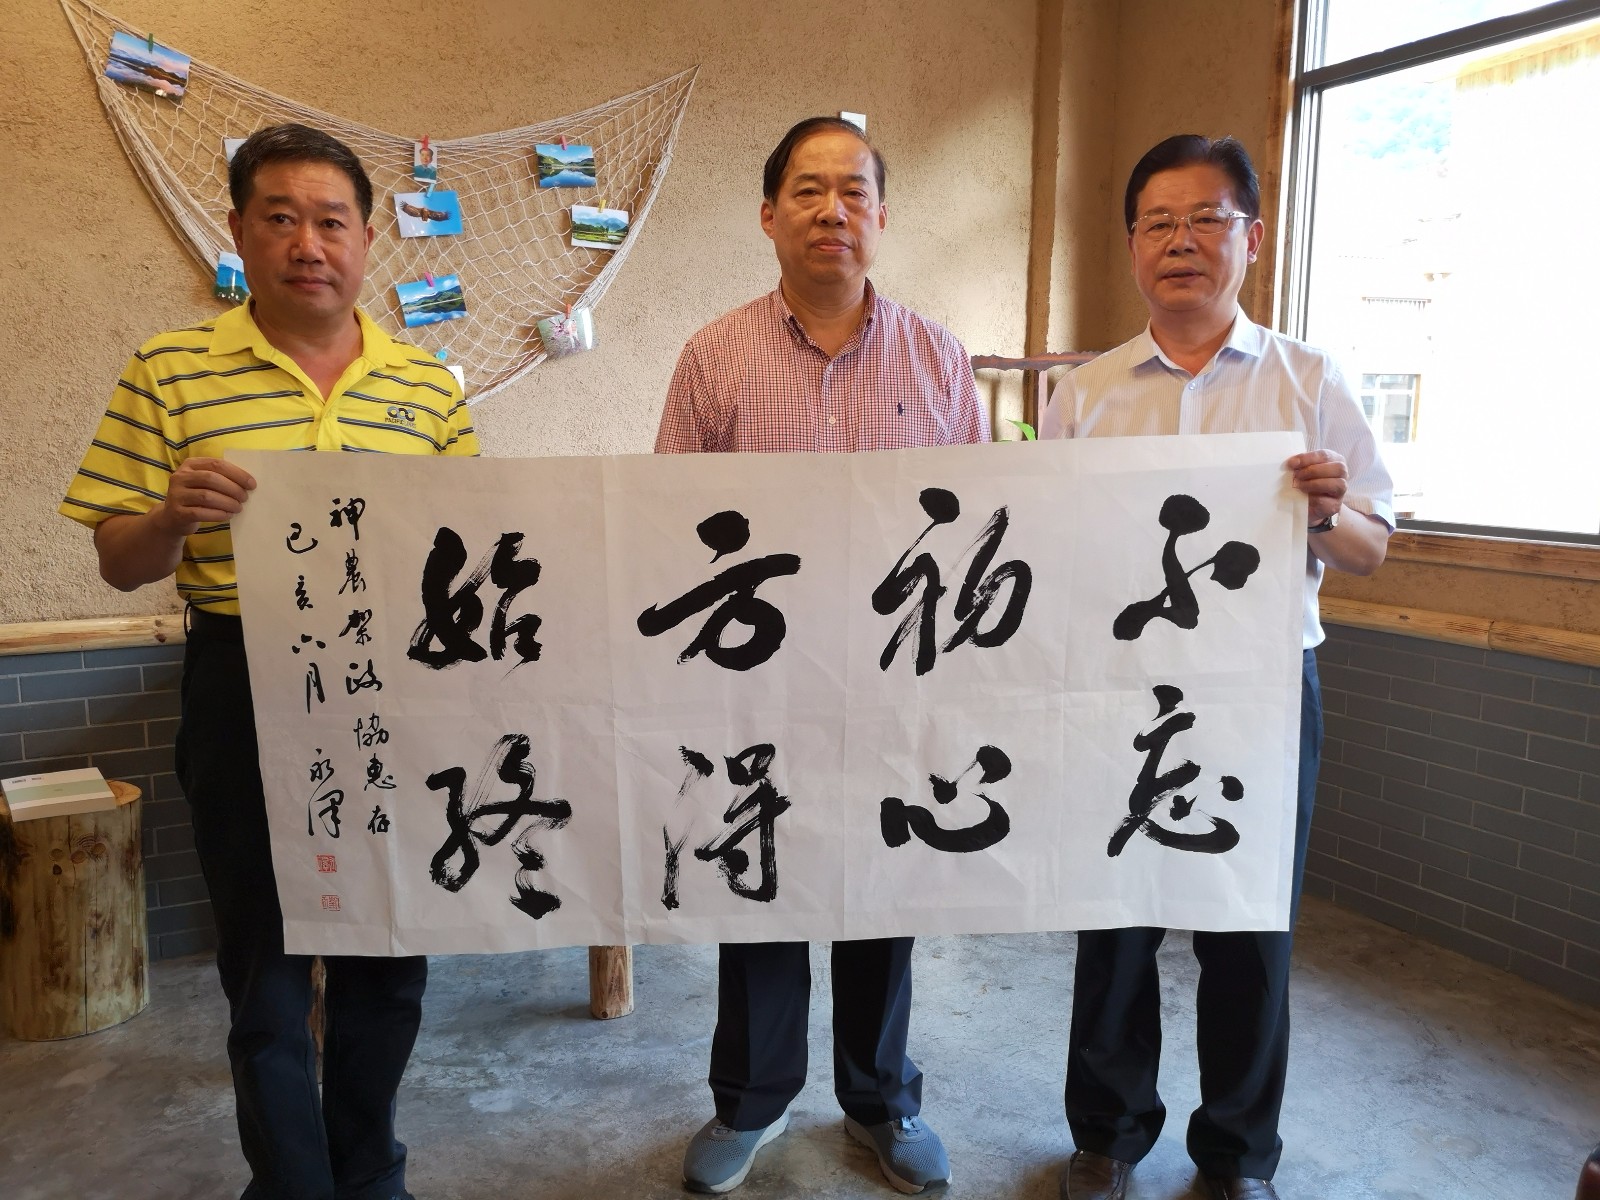 不忘
初心
方得
始終
神農架政協惠存
己亥六月 永澤